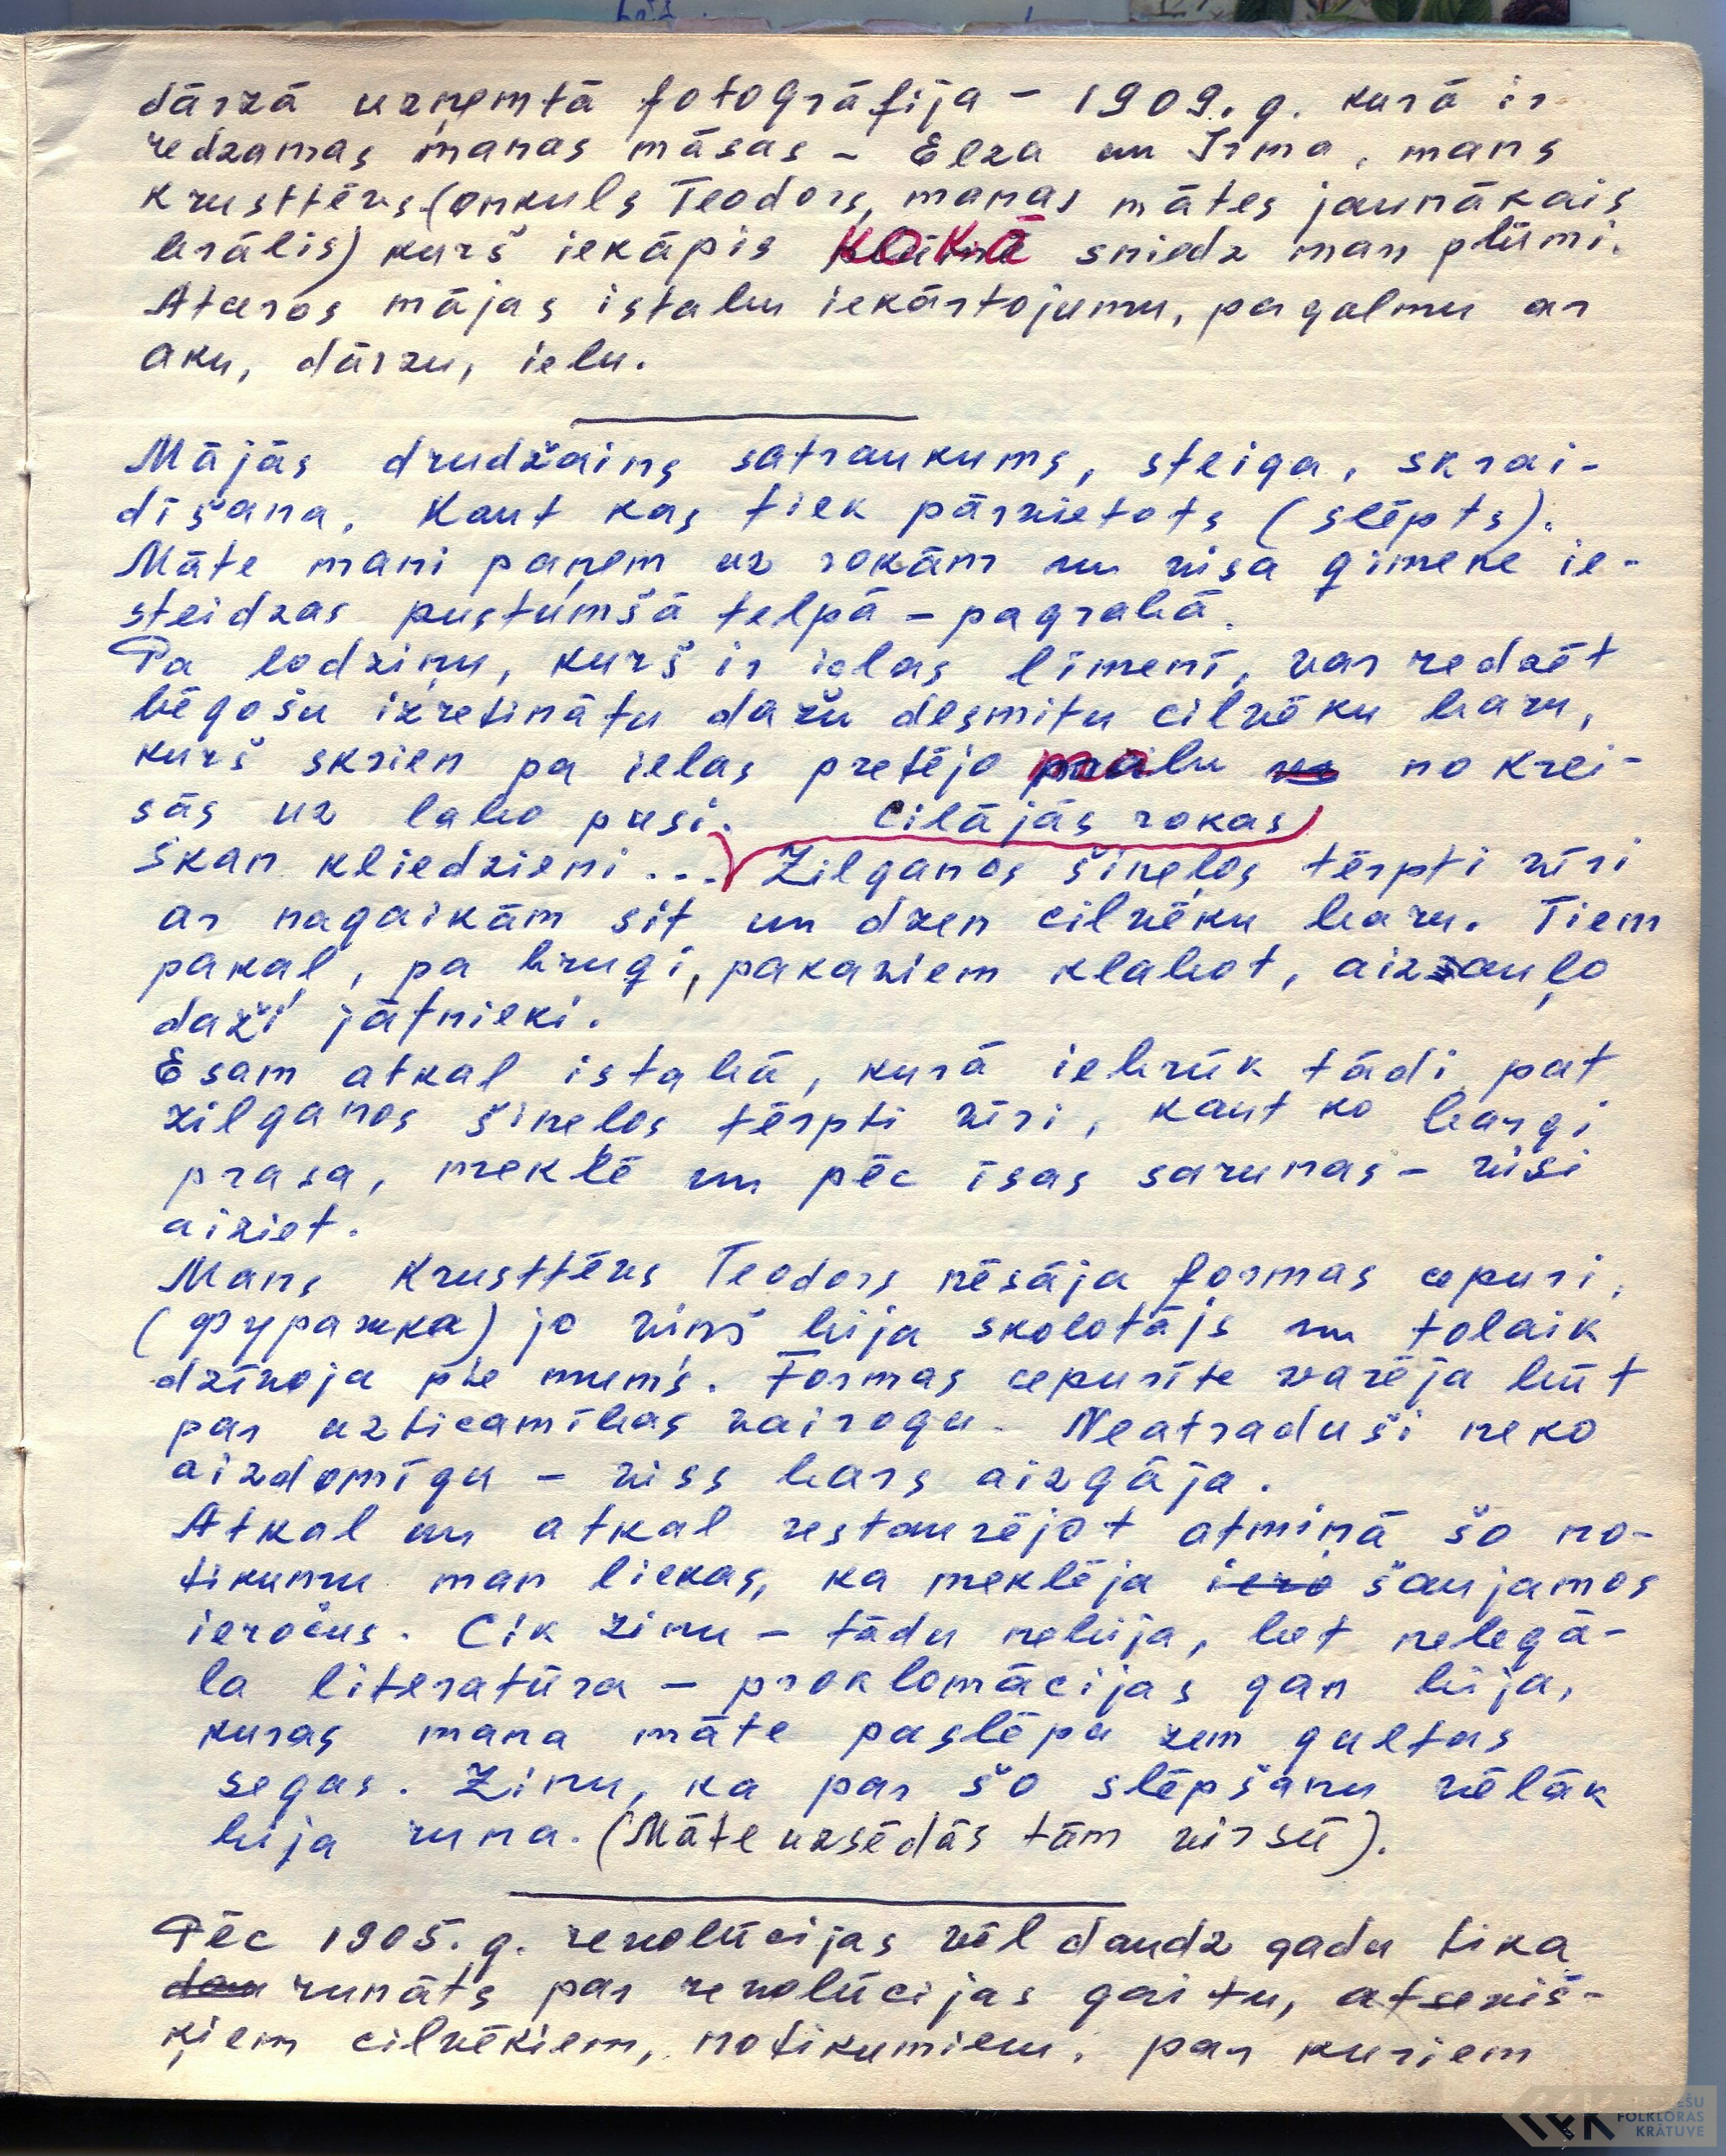 dārzā uzņemtā fotogrāfija – 1909. g. kurā ir
redzamas manas māsas – Elza un Irma, mans
Krusttēvs (onkuls Teodors, manas mātes jaunākais
brālis) kurš iekāpis KOKĀ sniedz man plūmi.
Atceros mājas istabu iekārtojumu, pagalmu ar
aku, dārzu, ielu.
Mājās drudžains satraukums, steiga, skrai-
dīšana. Kaut kas tiek pārvietots (slēpts).
Māte mani paņem uz rokām un visa ģimene ie-
steidzas pustumšā telpā – pagrabā.
Pa lodziņu, kurš ir ielas līmenī, var redzēt
bēgošu izretinātu dažu desmitu cilvēku baru,
kurš skrien pa ielas pretējo malu no krei-
sās uz labo pusi. Cilājās rokas
Skan kliedzieni ... Zilganos šineļos tērpti vīri
ar nagaikām sit un dzen cilvēku baru. Tiem
pakaļ, pa bruģi, pakaviem klabot, aizauļo
daži jātnieki.
Esam atkal istabā, kurā iebrūk tādi pat
zilganos šinelos tērpti vīri, kaut ko bargi
prasa, meklē un pēc īsas sarunas – visi
aiziet.
Mans Krusttēvs Teodors nēsāja formas cepuri,
(фуражка) jo viņš bija skolotājs un tolaik
dzīvoja pie mums. Formas cepurīte varēja būt
par uzticamības vairogu. Neatraduši neko
aizdomīgu – viss bars aizgāja.
Atkal un atkal restaurējot atmiņā šo no-
tikumu man liekas, ka meklēja iero šaujamos
ieročus. Cik zinu – tādu nebija, bet nelegā-
la literatūra – proklomācijas gan bija,
kuras mana māte paslēpa zem gultas
segas. Zinu, ka par šo slēpšanu vēlāk
bija runa. (Māte uzsēdās tām virsū).
Pēc 1905. g. revolūcijas vēl daudz gadu tika
dau runāts par revolūcijas gaitu, atseviš-
ķiem cilvēkiem, notikumiem, par kuriem
FOLKLORAS
KRĀTUVE